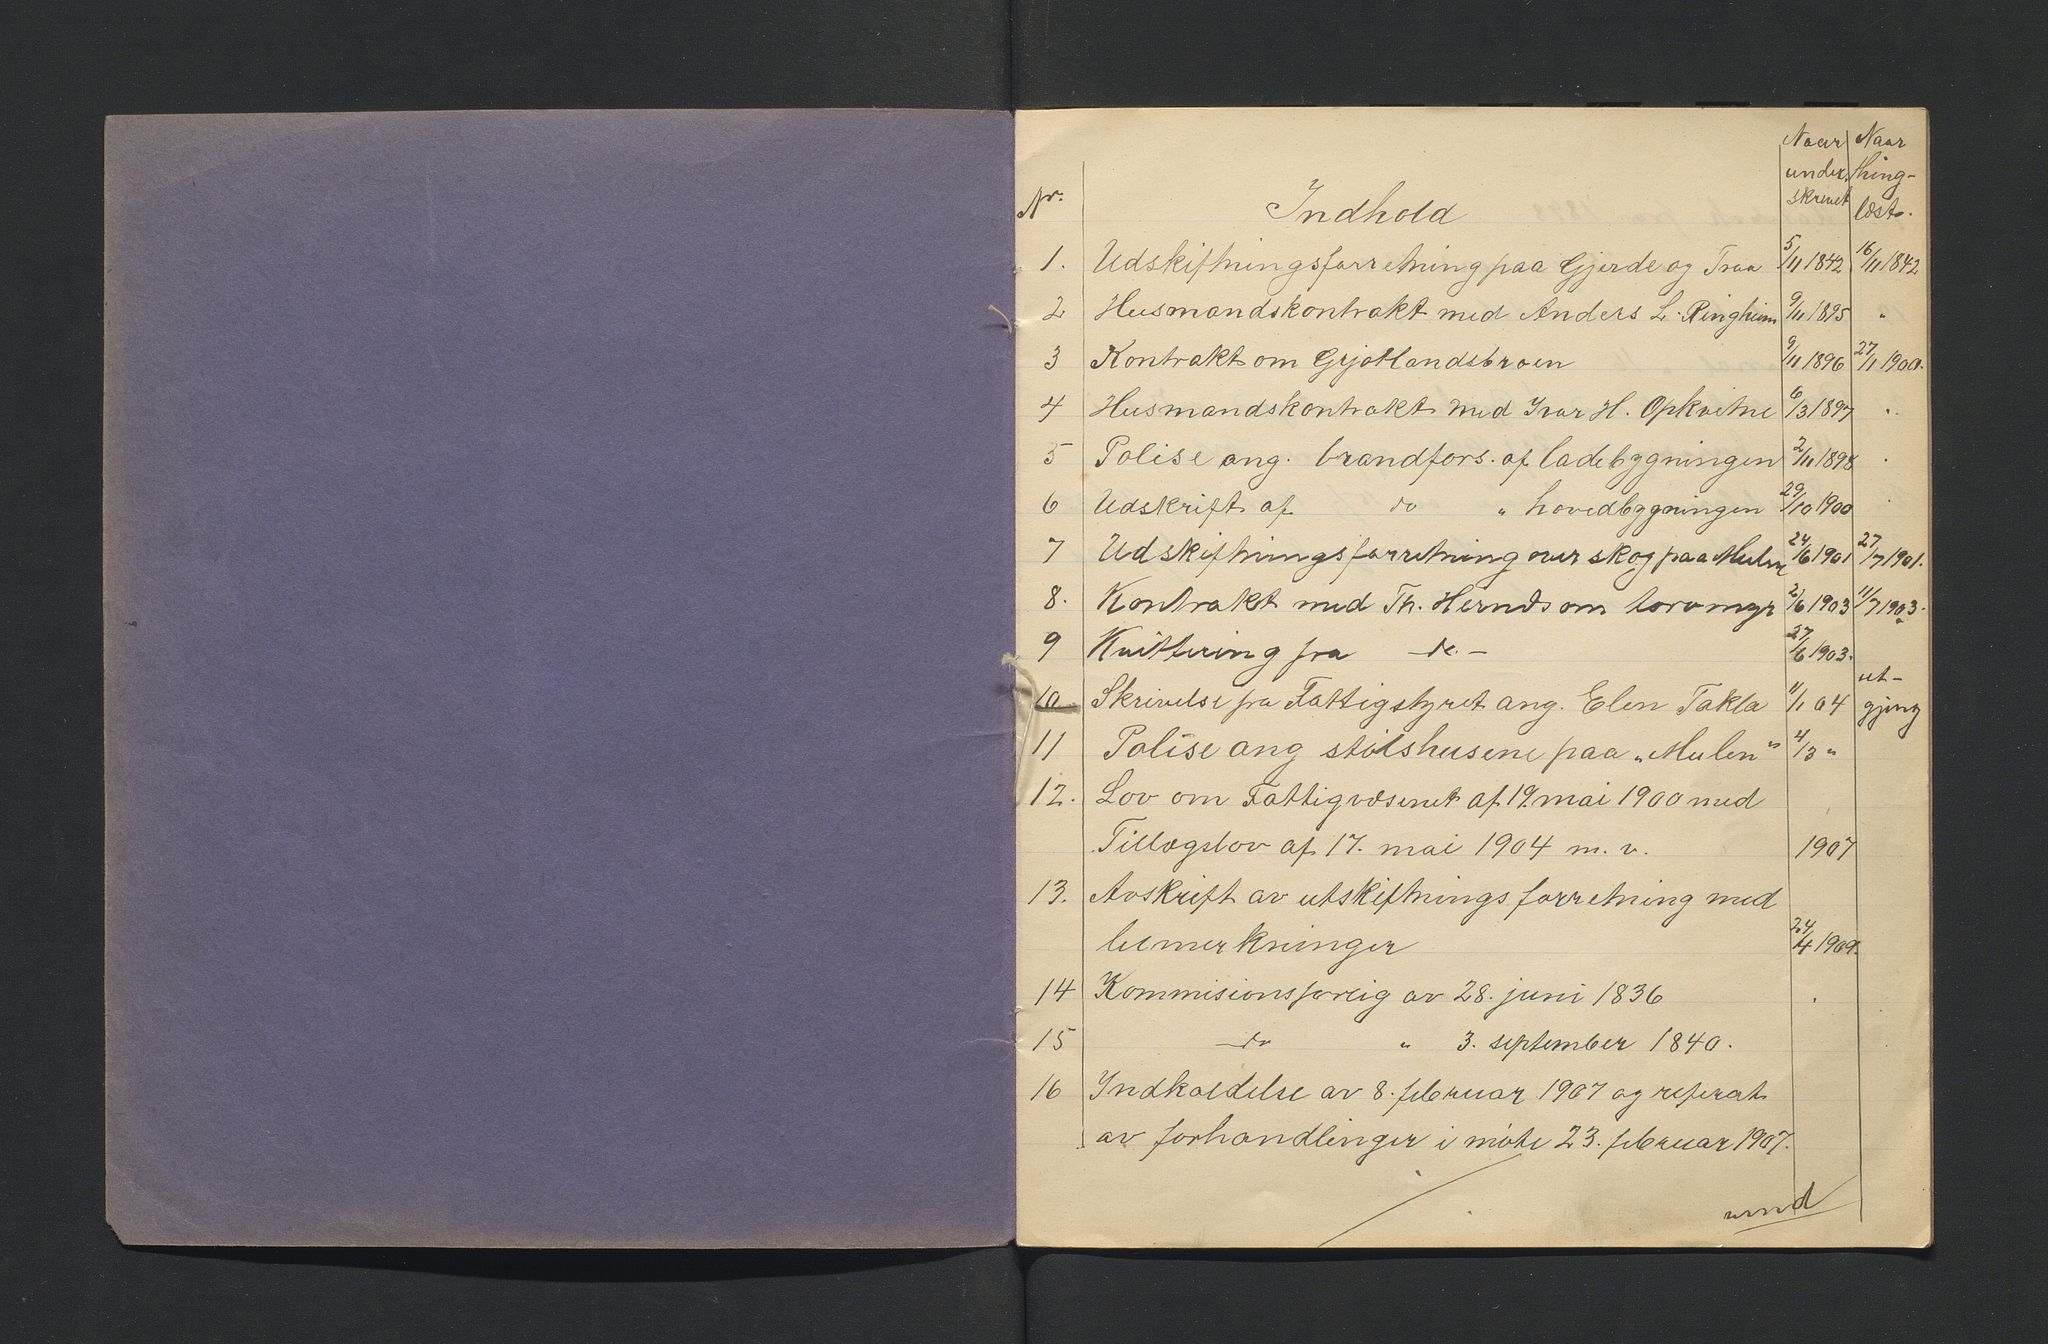 Naar Naar
under- thing-
Nr. Indhold skrevet læst.
1. Udskiftningsforretning paa Gjerde og Traa 5/11 1842 16/11 1842
2 Husmandskontrakt med Anders L. Ringheim 9/11 1895 "
3 Kontrakt om Grjotlandsbroen 9/11 1896 27/11 1900.
4 Husmandskontrakt med Ivar H. Opkvitne 6/3 1897 "
5 Polise ang. brandfors. af ladebygningen 2/11 1898 "
6 Udskrift af do " hovedbygningen 29/10 1900 "
7 Udskiftningsforretning over skog paa Mulen 24/6 1901 27/7 1901.
8. Kontrakt med Th. Hernæs om torvmyr 2/6 1903 11/7 1903.
9 Kvittering fra - do - 27/6 1903.
10 Skrivelse fra Fattigstyret ang. Elen Takla 11/1 04 ut-
gjeng
11 Polise ang stølshusene paa "Mulen" 4/3 "
12. Lov om Fattigvæsenet af 19. mai 1900 med
Tillægslov af 17. mai 1904 m. v. 1907
13. Avskrift av utskiftningsforretning med
bemerkninger 24/4 1909.
14 Kommisionsforlig av 28. juni 1836
15 do " 3. september 1840.
16 Indkaldelse av 8. februar 1907 og referat
av forhandlinger i møte 23. februar 1907.
vend